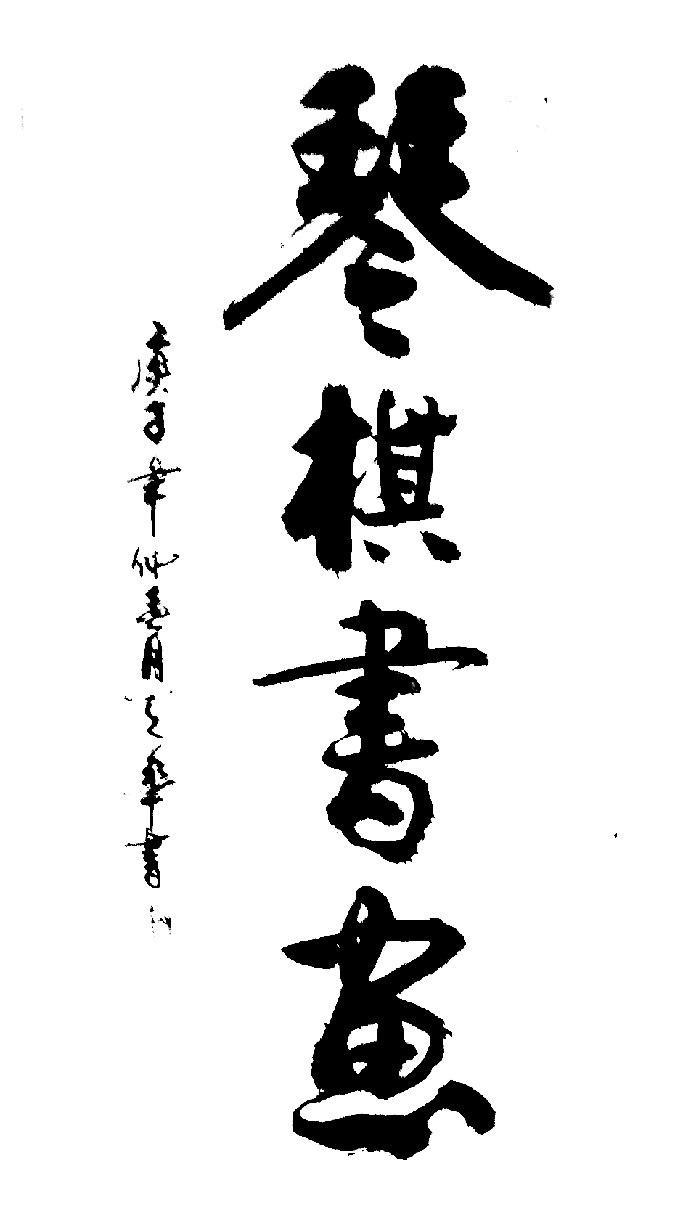 琴棋書畫
庚子年仲春月
華書